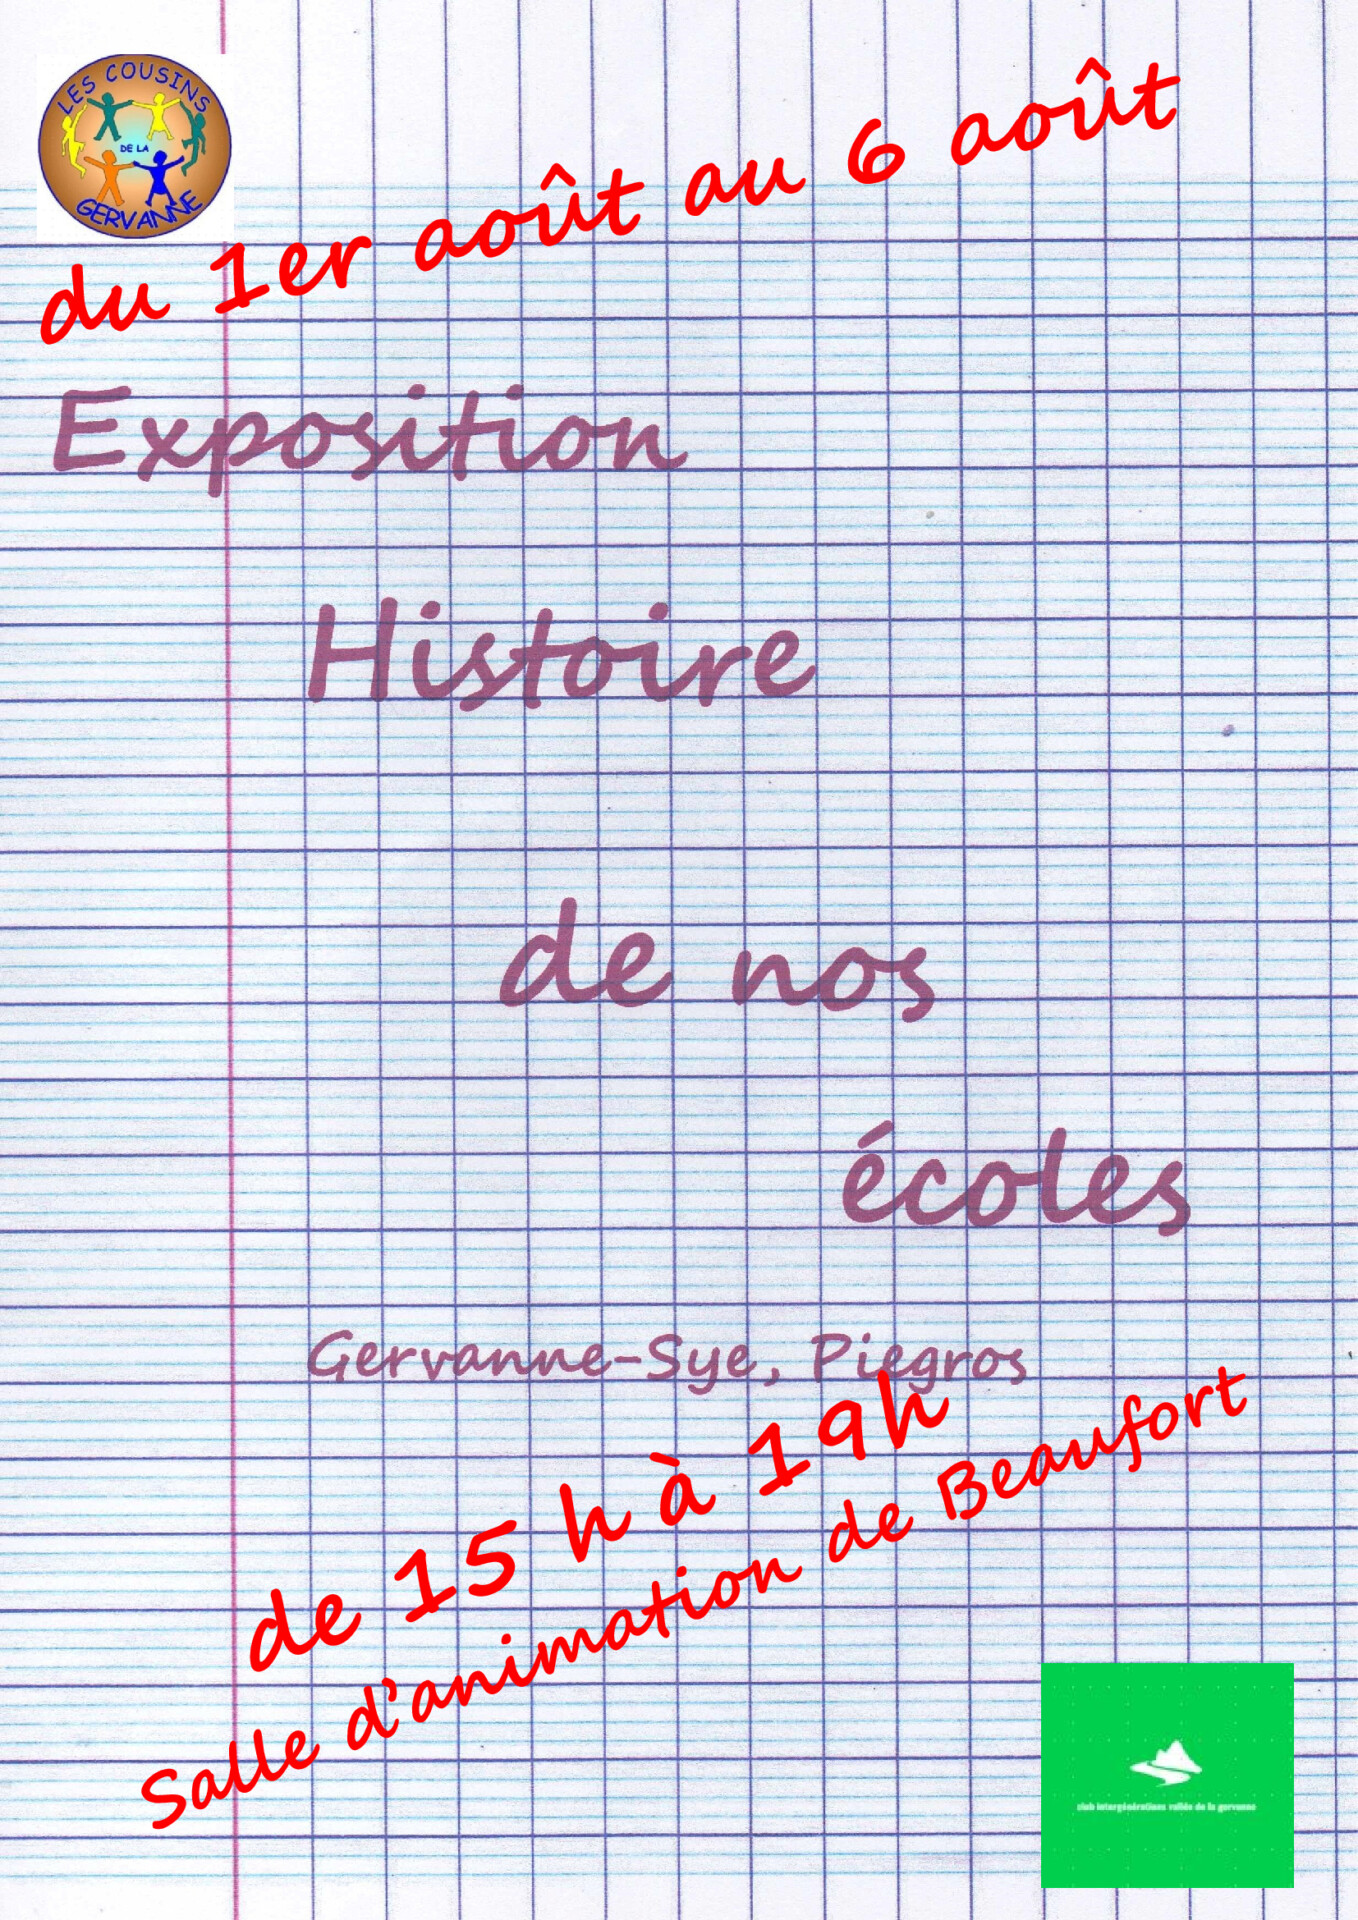 LES COUSINS
DE LA
GERVANNE
du 1er août au 6 août
Exposition
Histoire
de nos
écoles
Gervanne-Sye, Piegros
de 15 h à 19h
Salle d'animation de Beaufort
club intergénérations vallée de la gervanne